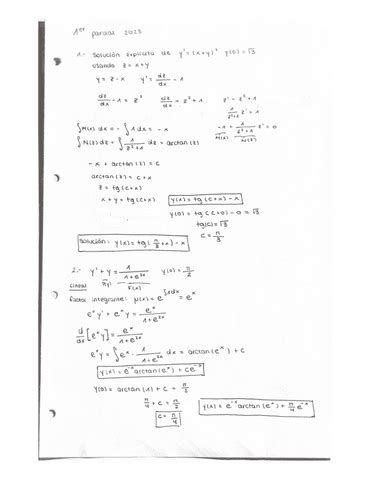 1er parcial 2023
1.- Solución explícita de y' = (x+y)² y(0) = √3
usando z = x+y
y = z - x y' = dz/dx - 1
dz/dx - 1 = z² dz/dx = z² + 1 z' = z² + 1
1/(z²+1) z' = 1
∫M(x) dx = -∫1 dx = -x -1 + 1/(z²+1) z' = 0
∫N(z) dz = ∫ 1/(z²+1) dz = arctan(z) M(x) N(z)
-x + arctan(z) = c
arctan(z) = c+x
z = tg(c+x)
x+y = tg(c+x) y(x) = tg(c+x) - x
y(0) = tg(c+0) - 0 = √3
tg(c) = √3
Solución: y(x) = tg(π/3 + x) - x c = π/3
2.- y' + y = 1/(1+e^2x) y(0) = π/2
Lineal P(x) F(x)
Factor integrante: μ(x) = e^∫1dx = e^x
e^x y' + e^x y = e^x/(1+e^2x)
d/dx [e^x y] = e^x/(1+e^2x)
e^x y = ∫ e^x · 1/(1+e^2x) dx = arctan(e^x) + c
y(x) = e^-x arctan(e^x) + ce^-x
y(0) = arctan(1) + c = π/2
π/4 + c = π/2
c = π/4 y(x) = e^-x arctan(e^x) + π/4 e^-x